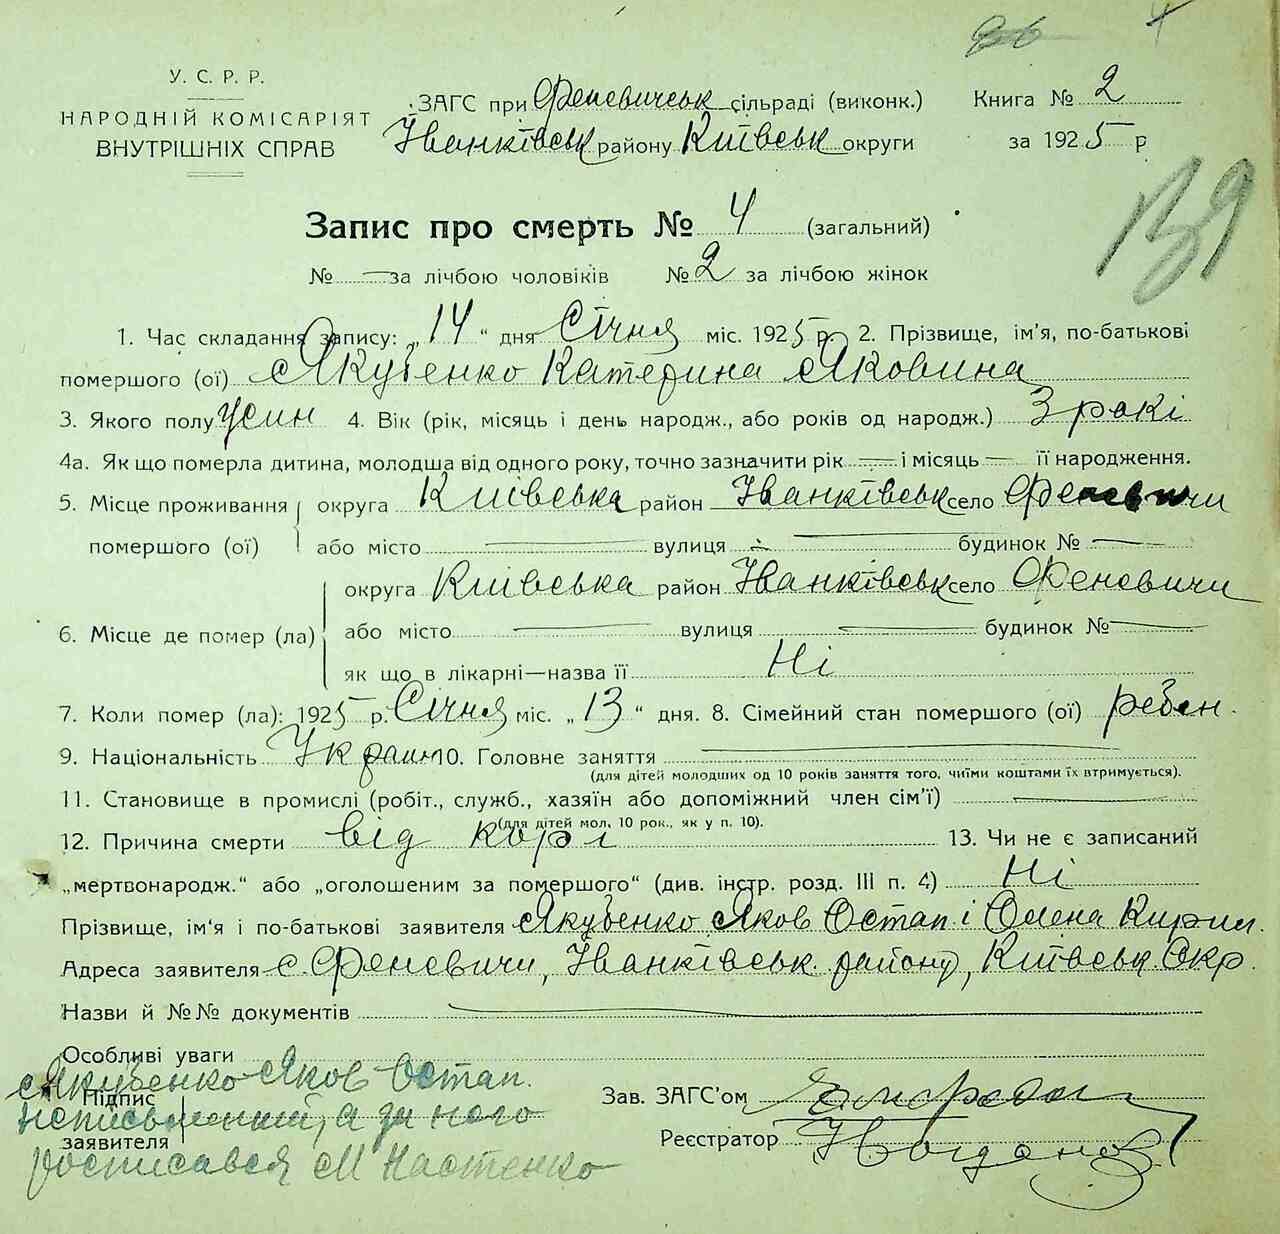 4
У. С. Р. Р.
НАРОДНІЙ КОМІСАРІЯТ
ВНУТРІШНІХ СПРАВ
ЗАГС при Феневичськ сільраді (виконк.)
Іванківськ району Київськ округи
Книга № 2
за 1925 р
Запис про смерть № 4 (загальний)
№ — за лічбою чоловіків № 2 за лічбою жінок
1. Час складання запису: „14“ дня Січня міс. 1925 р. 2. Прізвище, ім'я, по-батькові
помершого (ої) Якубенко Катерина Яковина
3. Якого полу 4. Вік (рік, місяць і день народж., або років од народж.) 3 рокі
4а. Як що померла дитина, молодша від одного року, точно зазначити рік — і місяць — її народження.
5. Місце проживання округа Київська район Іванківськ село Феневичи
помершого (ої) або місто — вулиця — будинок № —
округа Київська район Іванківськ село Феневичи
6. Місце де помер (ла) або місто — вулиця — будинок № —
як що в лікарні—назва її Ні
7. Коли помер (ла): 1925 р. Січня міс. „13“ дня. 8. Сімейний стан помершого (ої) ребен.
9. Національність Украин 10. Головне заняття —
(для дітей молодших од 10 років заняття того, чиїми коштами їх втримується).
11. Становище в промислі (робіт., служб., хазяїн або допоміжний член сім'ї) —
(для дітей мол. 10 рок., як у п. 10).
12. Причина смерти від корі 13. Чи не є записаний
„мертвонародж.“ або „оголошеним за помершого“ (див. інстр. розд. III п. 4) Ні
Прізвище, ім'я і по-батькові заявителя Якубенко Яков Остап і Олена Кирил.
Адреса заявителя с. Феневичи, Іванківськ району, Київськ Окр.
Назви й №№ документів —
Особливі уваги
Підпис
заявителя
Якубенко Яков Остап.
неписьменний, а за него
росписався М Настенко
Зав. ЗАГС'ом
Реєстратор